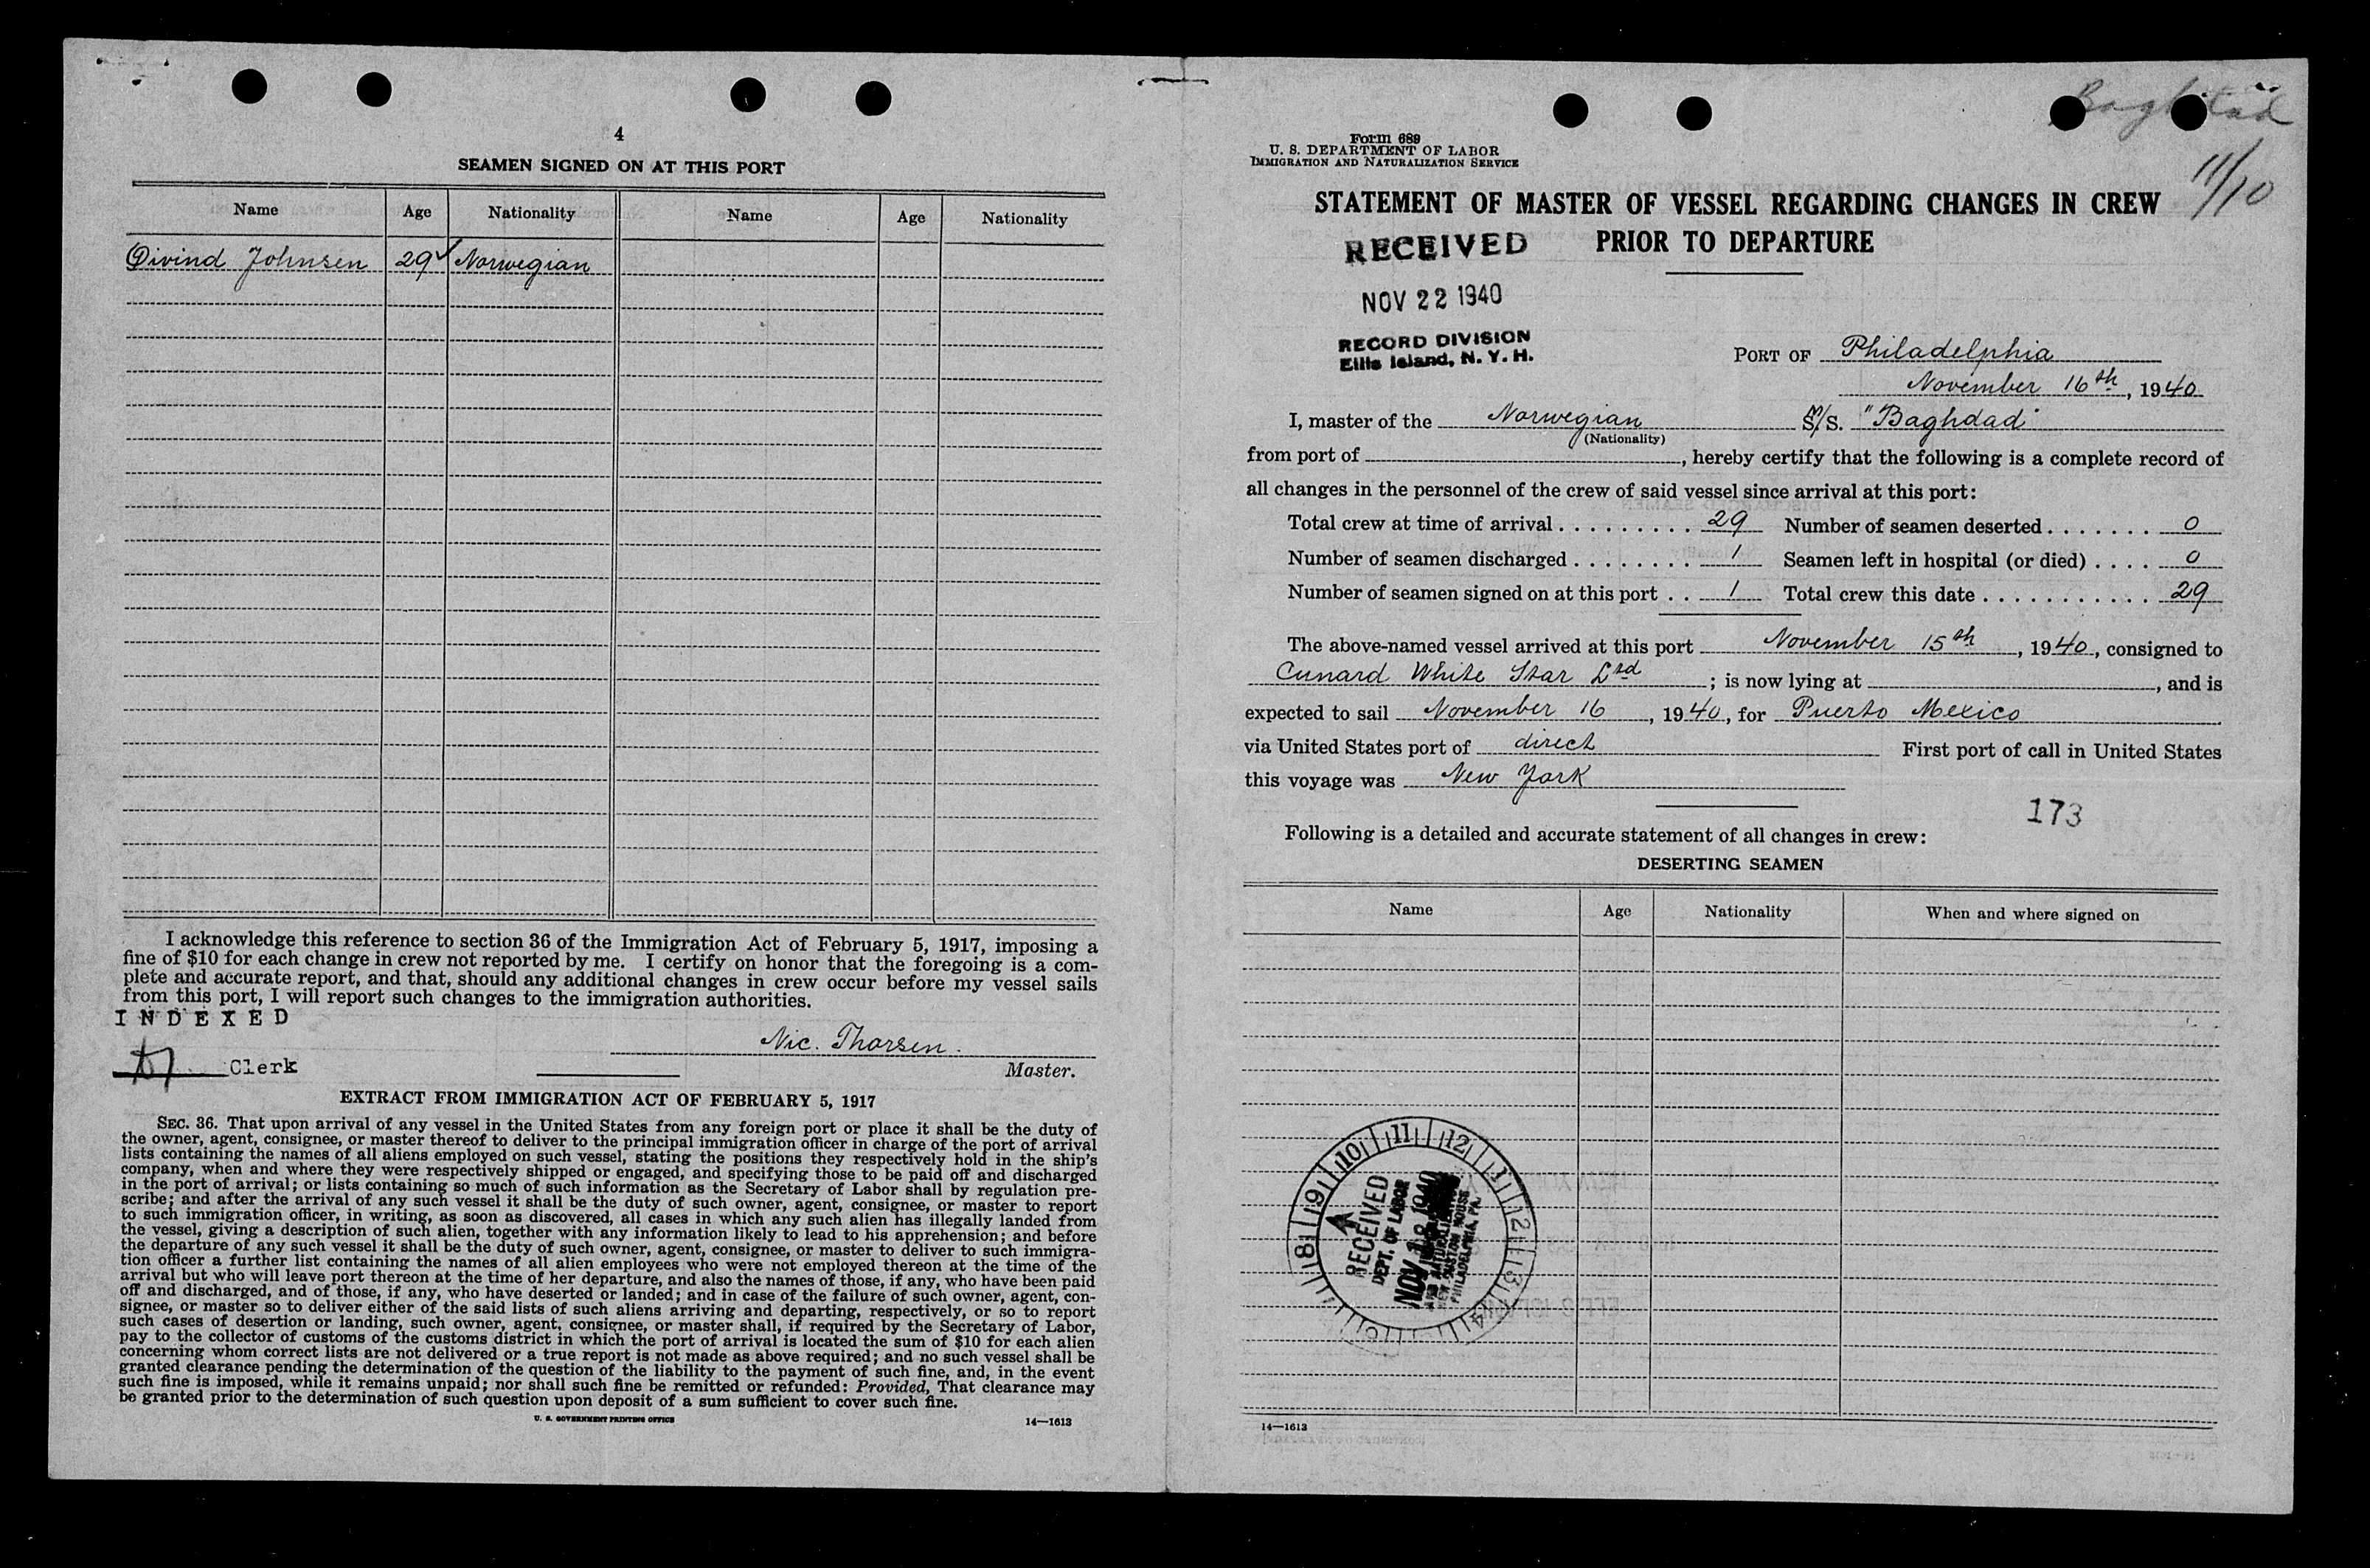 4
SEAMEN SIGNED ON AT THIS PORT
Name Age Nationality Name Age Nationality
Øivind Johnsen 29 ✓ Norwegian
I acknowledge this reference to section 36 of the Immigration Act of February 5, 1917, imposing a
fine of $10 for each change in crew not reported by me. I certify on honor that the foregoing is a com-
plete and accurate report, and that, should any additional changes in crew occur before my vessel sails
from this port, I will report such changes to the immigration authorities.
INDEXED
Nic. Thorsen.
Clerk
Master.
EXTRACT FROM IMMIGRATION ACT OF FEBRUARY 5, 1917
SEC. 36. That upon arrival of any vessel in the United States from any foreign port or place it shall be the duty of
the owner, agent, consignee, or master thereof to deliver to the principal immigration officer in charge of the port of arrival
lists containing the names of all aliens employed on such vessel, stating the positions they respectively hold in the ship's
company, when and where they were respectively shipped or engaged, and specifying those to be paid off and discharged
in the port of arrival; or lists containing so much of such information as the Secretary of Labor shall by regulation pre-
scribe; and after the arrival of any such vessel it shall be the duty of such owner, agent, consignee, or master to report
to such immigration officer, in writing, as soon as discovered, all cases in which any such alien has illegally landed from
the vessel, giving a description of such alien, together with any information likely to lead to his apprehension; and before
the departure of any such vessel it shall be the duty of such owner, agent, consignee, or master to deliver to such immigra-
tion officer a further list containing the names of all alien employees who were not employed thereon at the time of the
arrival but who will leave port thereon at the time of her departure, and also the names of those, if any, who have been paid
off and discharged, and of those, if any, who have deserted or landed; and in case of the failure of such owner, agent, con-
signee, or master so to deliver either of the said lists of such aliens arriving and departing, respectively, or so to report
such cases of desertion or landing, such owner, agent, consignee, or master shall, if required by the Secretary of Labor,
pay to the collector of customs of the customs district in which the port of arrival is located the sum of $10 for each alien
concerning whom correct lists are not delivered or a true report is not made as above required; and no such vessel shall be
granted clearance pending the determination of the question of the liability to the payment of such fine, and, in the event
such fine is imposed, while it remains unpaid; nor shall such fine be remitted or refunded: Provided, That clearance may
be granted prior to the determination of such question upon deposit of a sum sufficient to cover such fine.
U. S. GOVERNMENT PRINTING OFFICE 14—1613
Baghdad
11/10
Form 689
U. S. DEPARTMENT OF LABOR
IMMIGRATION AND NATURALIZATION SERVICE
STATEMENT OF MASTER OF VESSEL REGARDING CHANGES IN CREW
PRIOR TO DEPARTURE
RECEIVED
NOV 22 1940
RECORD DIVISION
Ellis Island, N. Y. H.
PORT OF Philadelphia
November 16th, 1940
I, master of the Norwegian M/S. "Baghdad"
(Nationality)
from port of , hereby certify that the following is a complete record of
all changes in the personnel of the crew of said vessel since arrival at this port:
Total crew at time of arrival 29 Number of seamen deserted 0
Number of seamen discharged 1 Seamen left in hospital (or died) 0
Number of seamen signed on at this port 1 Total crew this date 29
The above-named vessel arrived at this port November 15th, 1940, consigned to
Cunard White Star Ltd ; is now lying at , and is
expected to sail November 16, 1940, for Puerto Mexico
via United States port of direct First port of call in United States
this voyage was New York
173
Following is a detailed and accurate statement of all changes in crew:
DESERTING SEAMEN
Name Age Nationality When and where signed on
8 9 10 11 12 1 2 3 4
RECEIVED
DEPT. OF LABOR
NOV 18 1940
NEW CUSTOM HOUSE
PHILADELPHIA, PA.
14—1613